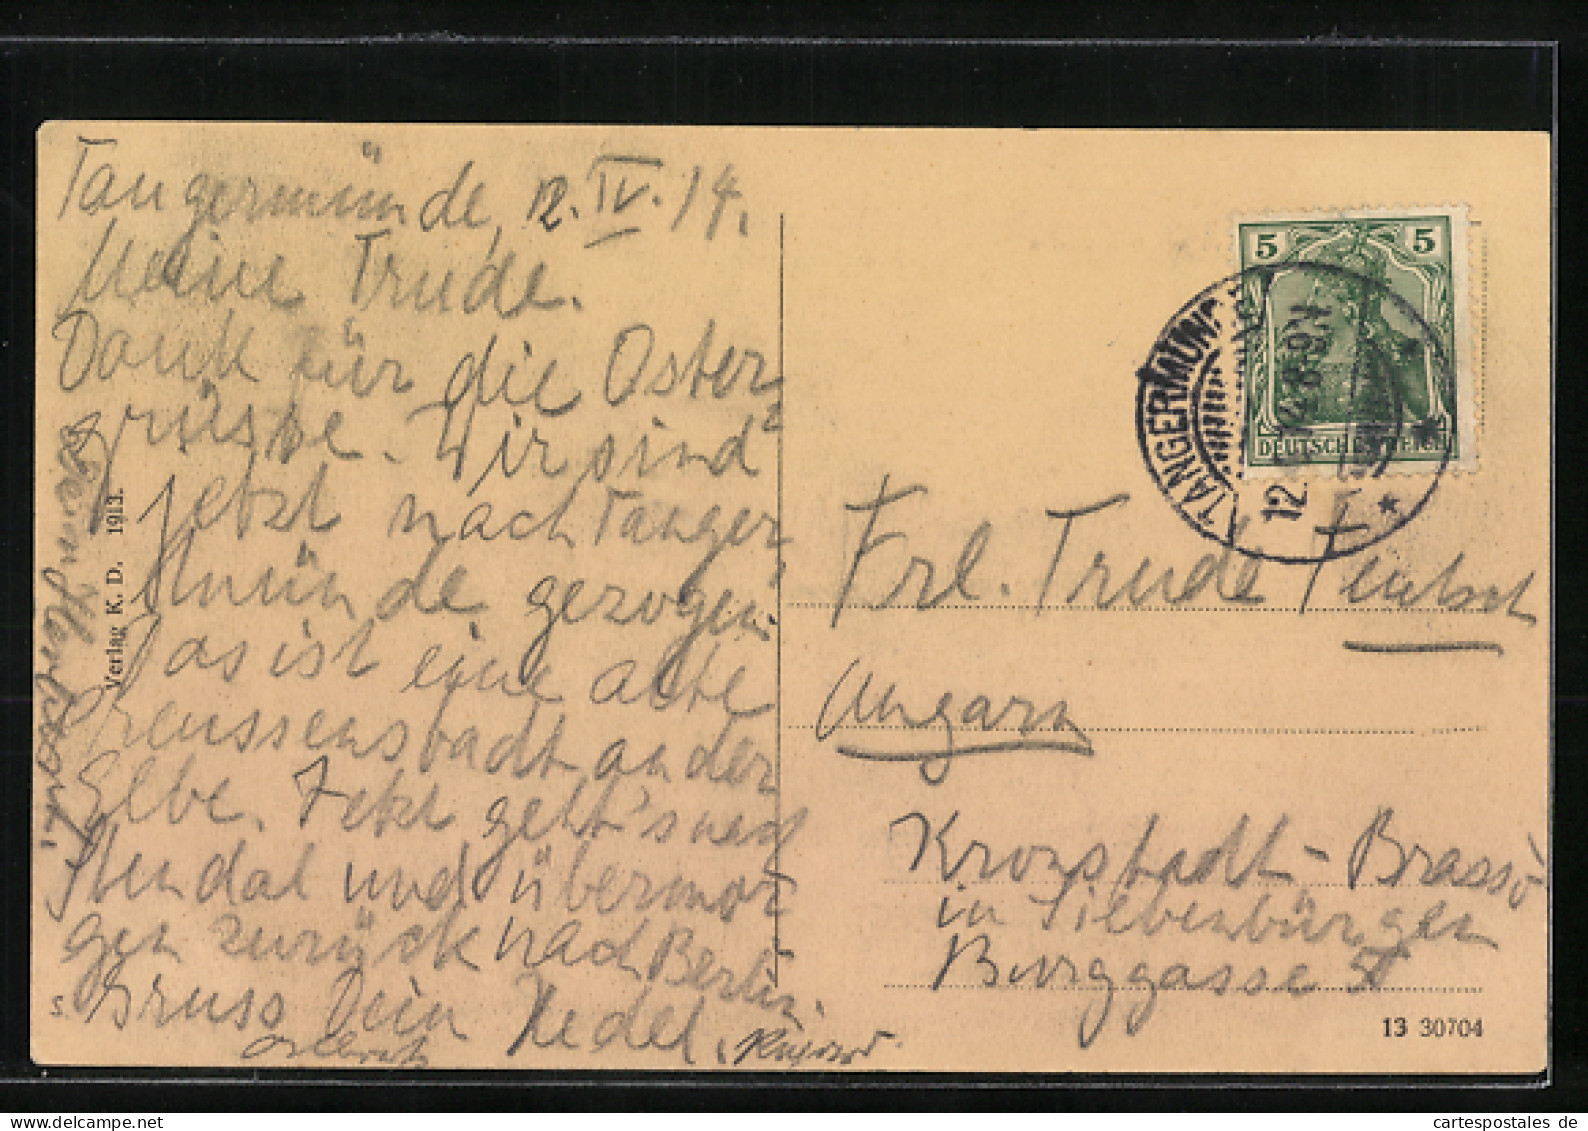 Tangermünde, 12. IV. 14.
Meine Trude.
Dank für die Oster
grüsse. Wir sind
jetzt nach Tanger
münde gezogen.
Das ist eine alte
Preussenstadt an der
Elbe. Jetzt geht's nach
Stendal und übermor
gen zurück nach Berlin.
Gruss Dein Hedel.
Verlag K. D. 1913.
S.
5 5
DEUTSCHES REICH
TANGERMÜNDE
12.
Frl. Trude Teutsch
Ungarn
Kronstadt - Brassó
in Siebenbürgen
Burggasse
13 30704
cartespostales de